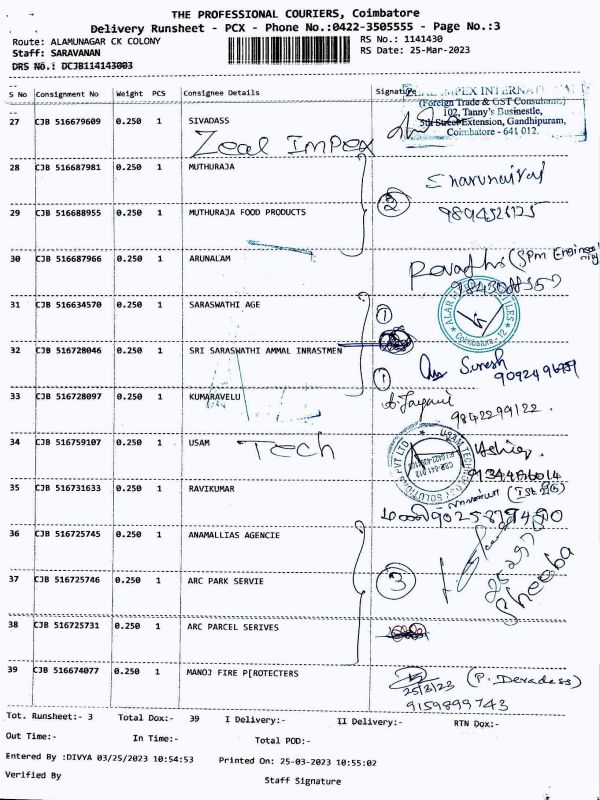 THE PROFESSIONAL COURIERS, Coimbatore
Delivery Runsheet - PCX - Phone No.:0422-3505555 - Page No.:3
Route: ALAMUNAGAR CK COLONY RS No.: 1141430
Staff: SARAVANAN RS Date: 25-Mar-2023
DRS No.: DCJB114143003
S No Consignment No Weight PCS Consignee Details Signature
(Foreign Trade & GST Consultants)
102, Tanny's Businestle,
5th Street Extension, Gandhipuram,
Coimbatore - 641 012.
27 CJB 516679609 0.250 1 SIVADASS
Zeal Impex
28 CJB 516687981 0.250 1 MUTHURAJA
2
29 CJB 516688955 0.250 1 MUTHURAJA FOOD PRODUCTS
30 CJB 516687966 0.250 1 ARUNALAM
31 CJB 516634570 0.250 1 SARASWATHI AGE
1
32 CJB 516728046 0.250 1 SRI SARASWATHI AMMAL INRASTMEN
1 Suresh
33 CJB 516728097 0.250 1 KUMARAVELU
9842299122.
34 CJB 516759107 0.250 1 USAM
Tech
35 CJB 516731633 0.250 1 RAVIKUMAR
36 CJB 516725745 0.250 1 ANAMALLIAS AGENCIE
37 CJB 516725746 0.250 1 ARC PARK SERVIE
3 Sheeba
38 CJB 516725731 0.250 1 ARC PARCEL SERIVES
39 CJB 516674077 0.250 1 MANOJ FIRE P[ROTECTERS
25/3/23 (P. Devadass)
9159899743
Tot. Runsheet:- 3 Total Dox:- 39 I Delivery:- II Delivery:- RTN Dox:-
Out Time:- In Time:- Total POD:-
Entered By :DIVYA 03/25/2023 10:54:53 Printed On: 25-03-2023 10:55:02
Verified By Staff Signature